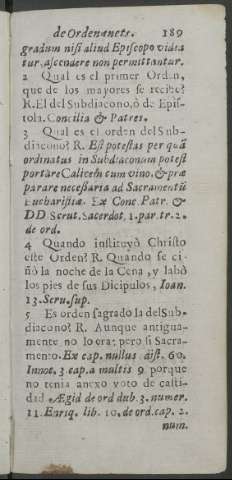 de Ordenanets. 189
gradum nisi aliud Episcopo videa
tur ascendere non permittantur.
2 Qual es el primer Orden,
que de los mayores se recibe?
R. El del Subdiacono, ò de Epis-
tola. Concilia & Patres.
3 Qual es el orden del Sub-
diacono? R. Est potestas per quã
ordinatus in Subdiaconum potest
portare Calicem cum vino, & præ
parare necessaria ad Sacramentũ
Eucharistiæ. Ex Conc. Patr. &
DD Scrut. Sacerdot. 1. par. tr. 2.
de ord.
4 Quando instituyò Christo
este Orden? R. Quando se ci-
ñò la noche de la Cena, y labò
los pies de sus Dicipulos, Ioan.
13. Scru. sup.
5 Es orden sagrado la del Sub-
diacono? R. Aunque antigua-
mente no lo era; pero si Sacra-
mento. Ex cap. nullus dist. 60.
Innoc. 3. cap. a multis 9 porque
no tenia anexo voto de casti-
dad Ægid de ord dub. 3. numer.
11. Enriq. lib. 10. de ord. cap. 2.
num.